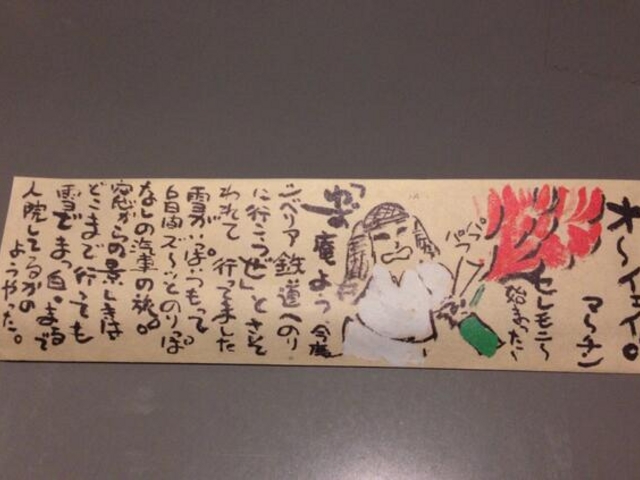 オ〜イェイ。
マーチン
セレモニ〜
始まった〜
パラ
パラ
庵よう 今度
シベリア鉄道へのり
に行こうぜ」とさそ
われて行ってました
雪がいっぱいつもって。
6日間ズ〜ッとのりっぱ
なしの汽車の旅。
窓からの景しきは
どこまで行っても
雪でまっ白。まるで
入院してるかの
ようやった。